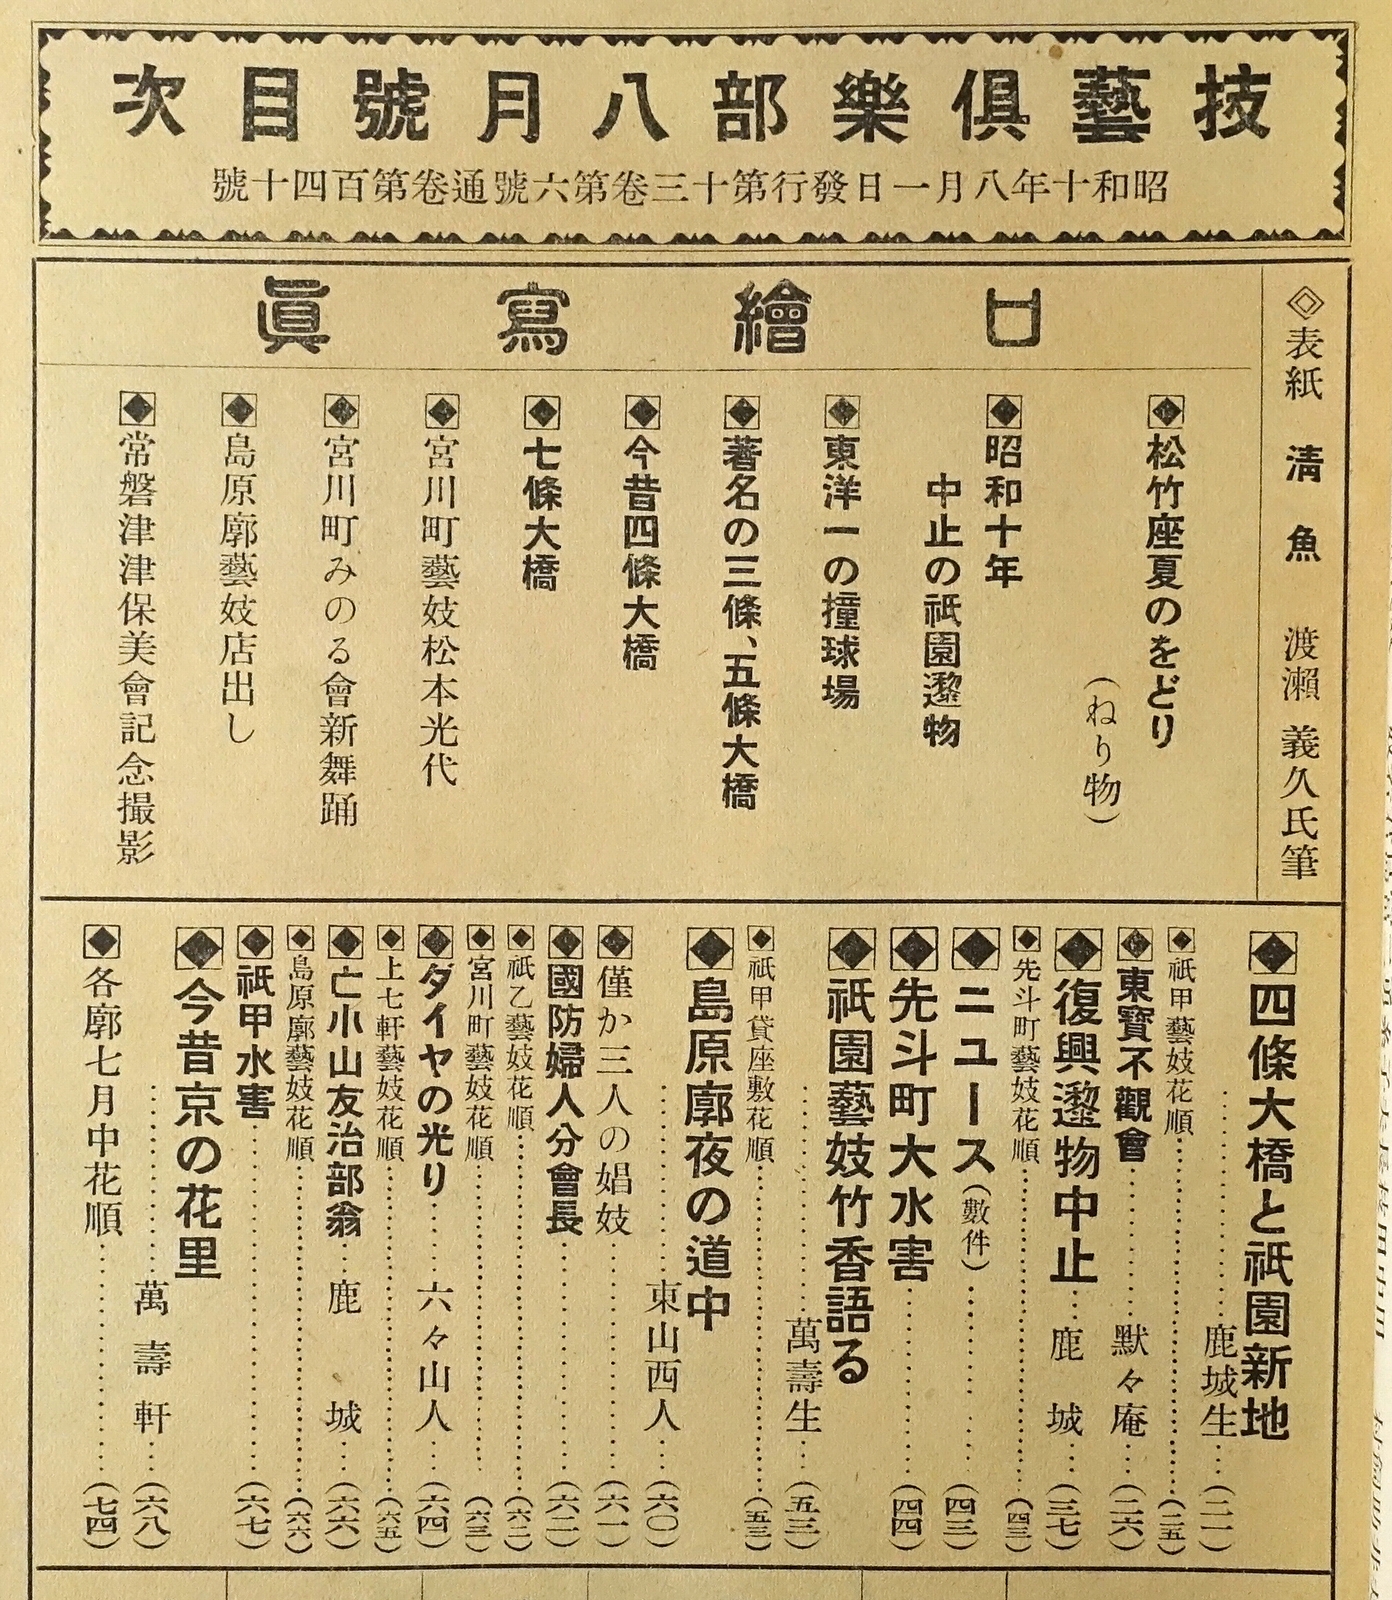 技藝倶樂部八月號目次
昭和十年八月一日發行第十三卷第六號通卷第百四十號
◇表紙 淸魚 渡瀨義久氏筆
口繪寫眞
◆松竹座夏のをどり
(ねり物)
◆昭和十年
中止の祇園邌物
◆東洋一の撞球場
◆著名の三條、五條大橋
◆今昔四條大橋
◆七條大橋
◆宮川町藝妓松本光代
◆宮川町みのる會新舞踊
◆島原廓藝妓店出し
◆常磐津津保美會記念撮影
◆四條大橋と祇園新地
………鹿城生…(二一)
◆祇甲藝妓花順………(二五)
◆東寶不觀會………默々庵…(二六)
◆復興邌物中止…鹿城…(三七)
◆先斗町藝妓花順………(四三)
◆ニュース(數件)………(四三)
◆先斗町大水害………(四四)
◆祇園藝妓竹香語る
………萬壽生…(五三)
◆祇甲貸座敷花順………(五三)
◆島原廓夜の道中
………東山西人…(六〇)
◆僅か三人の娼妓………(六一)
◆國防婦人分會長………(六二)
◆祇乙藝妓花順………(六二)
◆宮川町藝妓花順………(六三)
◆ダイヤの光り……六々山人…(六四)
◆上七軒藝妓花順………(六五)
◆亡小山友治部翁…鹿城…(六六)
◆島原廓藝妓花順………(六六)
◆祇甲水害………(六七)
◆今昔京の花里
………萬壽軒…(六八)
◆各廓七月中花順………(七四)